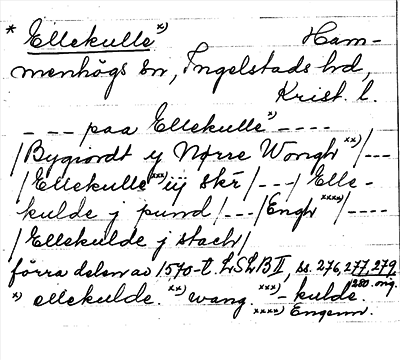 * Ellekulle x) Ham-
menhögs sn, Ingelstads hd,
Krist. l.
- - - paa Ellekulle x) - - - -
/Bygiordt y Nørre Wongh xx)/ - - -
/Ellekulle xxx) iij skr/ - - -/ Elle-
kulde j pund/ - - -/Engh xxxx)/ - - - -
/Ellekulde j stach/
förra delen av 1570-t. LSLB II, ss. 276, 277, 279,
1280 orig.
x) ellekulde. xx) wang. xxx) -kulde.
xxxx) Engenn.